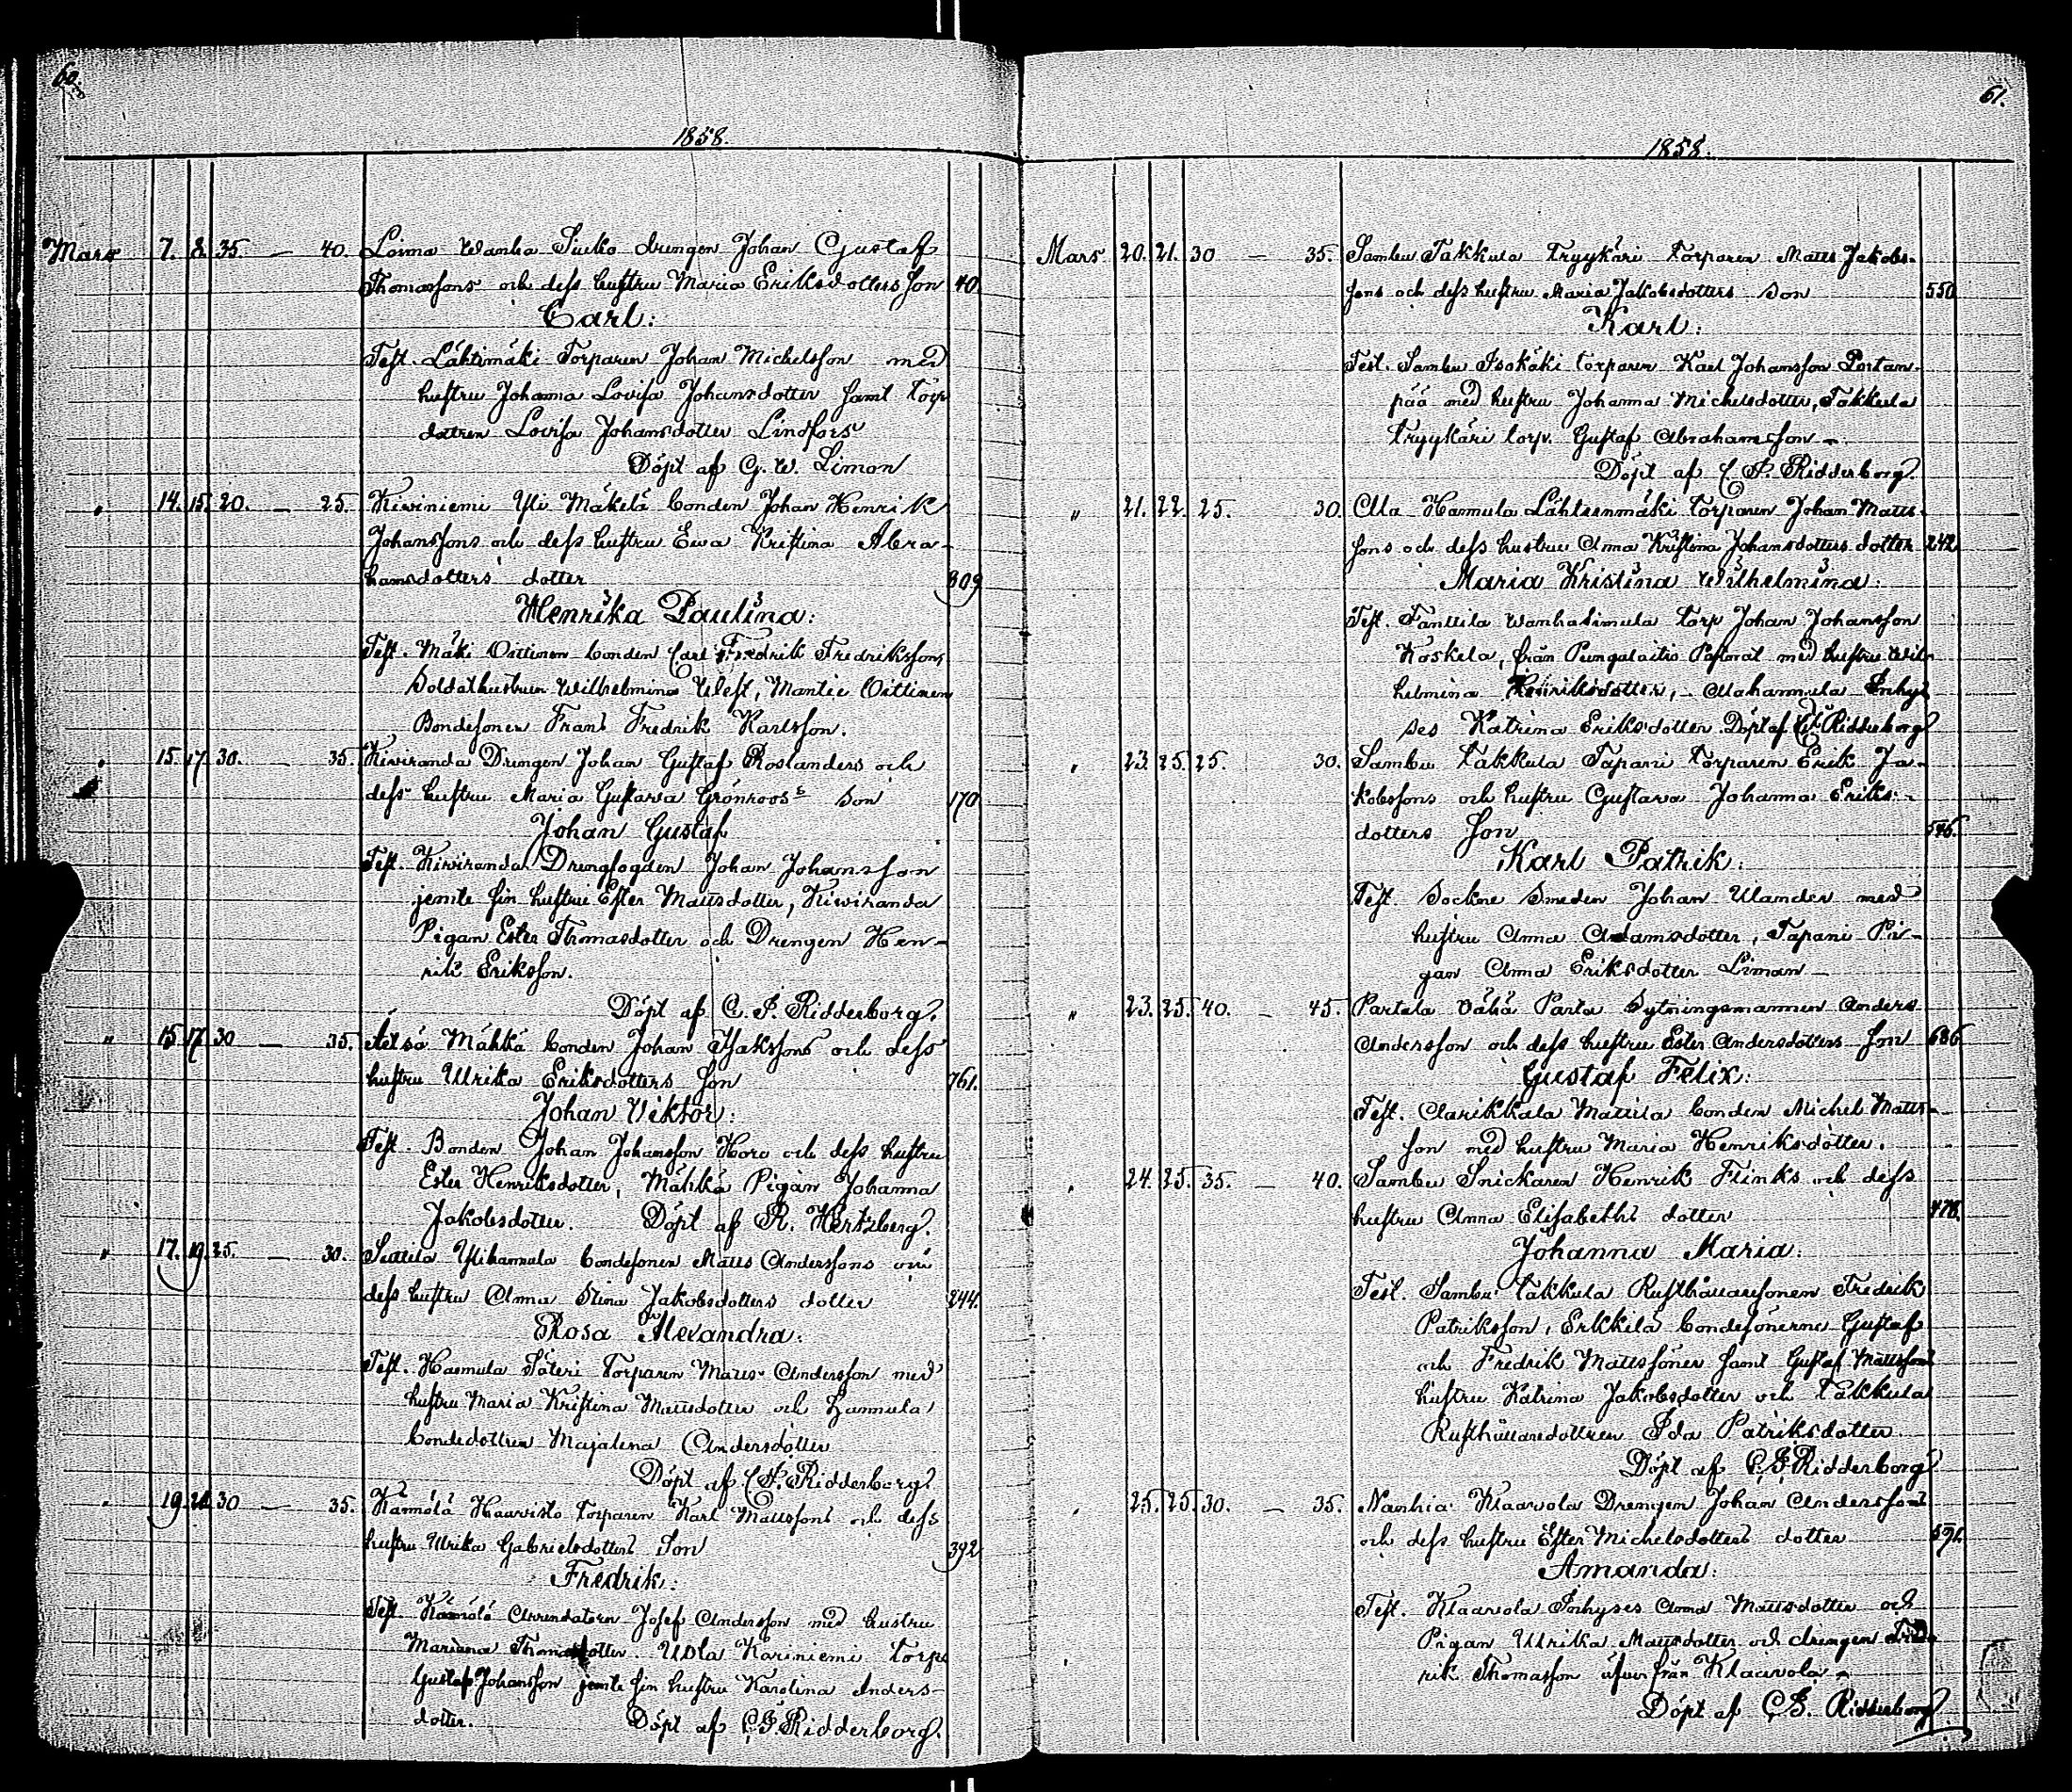 60.
1858.
Mars 7. 8. 35. — 40. Loima Wanha Sucko drengen Johan Gustaf
Thomassons och dess hustru Maria Eriksdotters Son 40
Carl:
Test. Lähtimäki Torparen Johan Michelsson med
hustru Johanna Lovisa Johansdotter samt torp
dottren Lovisa Johansdotter Lindfors
Döpt af G. W. Limon
" 14. 15. 20. — 25. Kiviniemi Yli Mäkelä bonden Johan Henrik
Johanssons och dess hustru Ewa Kristina Abra-
hamsdotters dotter 809
Henrika Paulina:
Test. Mäki Oittinen bonden Carl Fredrik Fredriksson,
Soldathustrun Wilhelmina West, Mantie Oittinen
Bondesonen Frans Fredrik Karlsson.
" 15. 17. 30. — 35. Kiviranda Drengen Johan Gustaf Roslanders och
dess hustru Maria Gustava Grönroos's Son 170
Johan Gustaf
Test. Kiviranda Drengfogden Johan Johansson
jemte sin hustru Ester Mattsdotter, Kiviranda
Pigan Ester Thomasdotter och Drengen Hen-
rik Eriksson.
Döpt af C. J. Ridderborg.
" 15 17 30 — 35. Äetsä Mähkä bonden Johan Isakssons och dess
hustru Ulrika Eriksdotters Son 761.
Johan Viktor:
Test. Bonden Johan Johansson Horo och dess hustru
Ester Henriksdotter, Mähkä Pigan Johanna
Jakobsdotter. Döpt af R. Hertzberg.
" 17. 19. 25. — 30. Suttila Ylihannula bondesonen Matts Anderssons och
dess hustru Anna Stina Jakobsdotters dotter 244.
Rosa Alexandra:
Test. Haemula Säteri Torparen Matts Andersson med
hustru Maria Kristina Mattsdotter och Hannula
bondedottren Majalena Andersdotter
Döpt af C. J. Ridderborg
" 19. 21. 30 — 35. Kämölä Haavisto torparen Karl Mattssons och dess
hustru Ulrika Gabrielsdotters Son 392
Fredrik:
Test. Kämölä Arrendatorn Josef Andersson med hustru
Mariana Thomasdotter. Uola Kariniemi Torp.
Gustaf Johansson jemte sin hustru Karolina Anders-
dotter. Döpt af C. J. Ridderborg.
61.
1858.
Mars 20. 21. 30 — 35. Sambu Takkula Tryykäri torparen Matts Jakobs-
sons och dess hustru Maria Jakobsdotters Son 550
Karl:
Test. Sambu Isokäki torparen Karl Johansson Portan-
pää med hustru Johanna Michelsdotter, Takkula
Tryykäri torp. Gustaf Abrahamsson
Döpt af C. J. Ridderborg.
" 21. 22. 25. 30. Ala Hannula Lähteenmäki torparen Johan Matts-
sons och dess hustru Anna Kristina Johansdotters dotter 242
Maria Kristina Wilhelmina:
Test. Tanttila Wanhasimula torp Johan Johansson
Koskela, från Pungalaitio Pastorat med hustru Wil-
helmina Henriksdotter, Alahannula Inhy-
ses Katrina Eriksdotter. Döpt af C. J. Ridderborg
" 23. 25. 25. 30. Sambu Takkula Tapani torparen Erik Ja-
kobssons och hustru Gustava Johanna Eriks-
dotters Son 546.
Karl Patrik:
Test. Sockne Smeden Johan Ulander med
hustru Anna Adamsdotter, Tapani Pi-
gan Anna Eriksdotter Liman
" 23. 25. 40. — 45. Partala Vähä Parta Sytningsmannen Anders
Andersson och dess hustru Ester Andersdotters Son 686
Gustaf Felix:
Test. Clarikkala Mattila bonden Michel Matts-
son med hustru Maria Henriksdotter.
" 24. 25. 35. — 40. Sambu Snickaren Henrik Flinks och dess
hustru Anna Elisabeths dotter 478.
Johanna Maria:
Test. Sambu Takkula Rusthållaresonen Fredrik
Patriksson, Erkkilä bondesönerne Gustaf
och Fredrik Mattssöner samt Gustaf Mattssons
hustru Katrina Jakobsdotter och Takkula
Rusthållaredottren Ida Patriksdotter
Döpt af C. J. Ridderborg
" 25. 25. 30. — 35. Nanhia Klaavola Drengen Johan Anderssons
och dess hustru Ester Michelsdotters dotter 591.
Amanda:
Test. Klaavola Inhyses Anna Mattsdotter och
Pigan Ulrika Mattsdotter och drengen Fred-
rik Thomasson äfven från Klaavola
Döpt af C. J. Ridderborg.